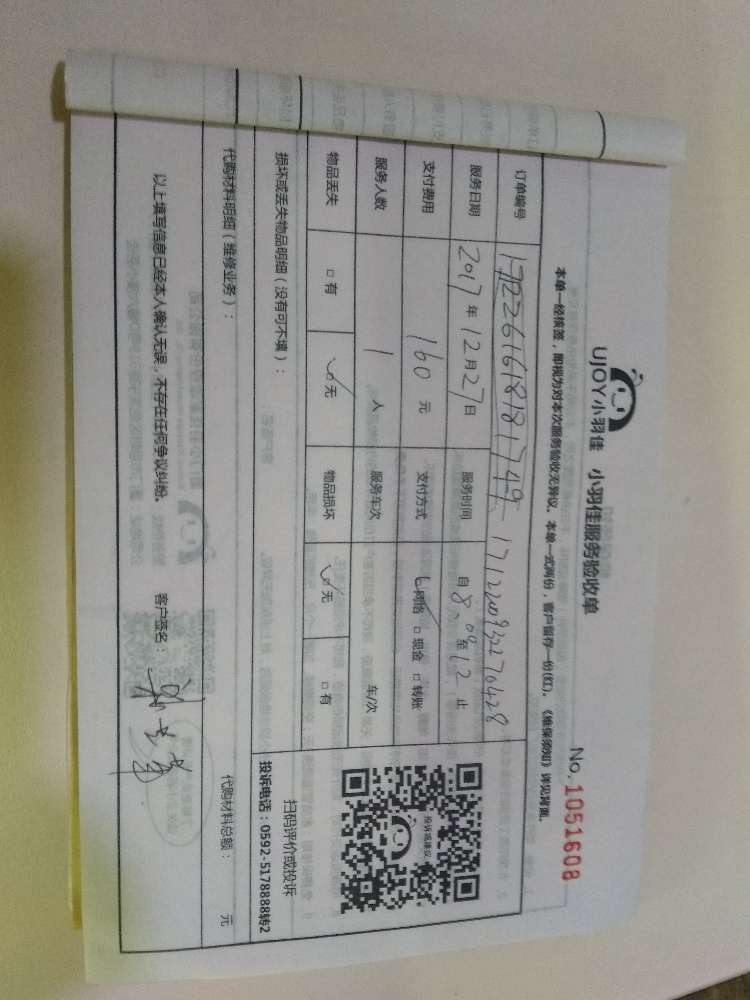 UJOY小羽佳 小羽佳服务验收单
No. 1051608
本单一经核签，即视为对本次服务验收无异议。本单一式两份，客户留存一份(红)。《维保须知》详见背面。
订单编号
服务日期 2017年12月27日 服务时间 自8:00至12止
支付费用 160元 支付方式 ☑网络 □现金 □转账
服务人数 1人 服务车次 车/次
物品丢失 □有 ☑无 物品损坏 ☑无 □有
投诉或建议
扫码评价或投诉
投诉电话：0592-5178888转2
损坏或丢失物品明细（没有可不填）：
代购材料明细（维修业务）： 代购材料总额： 元
以上填写信息已经本人确认无误，不存在任何争议纠纷。 客户签名：